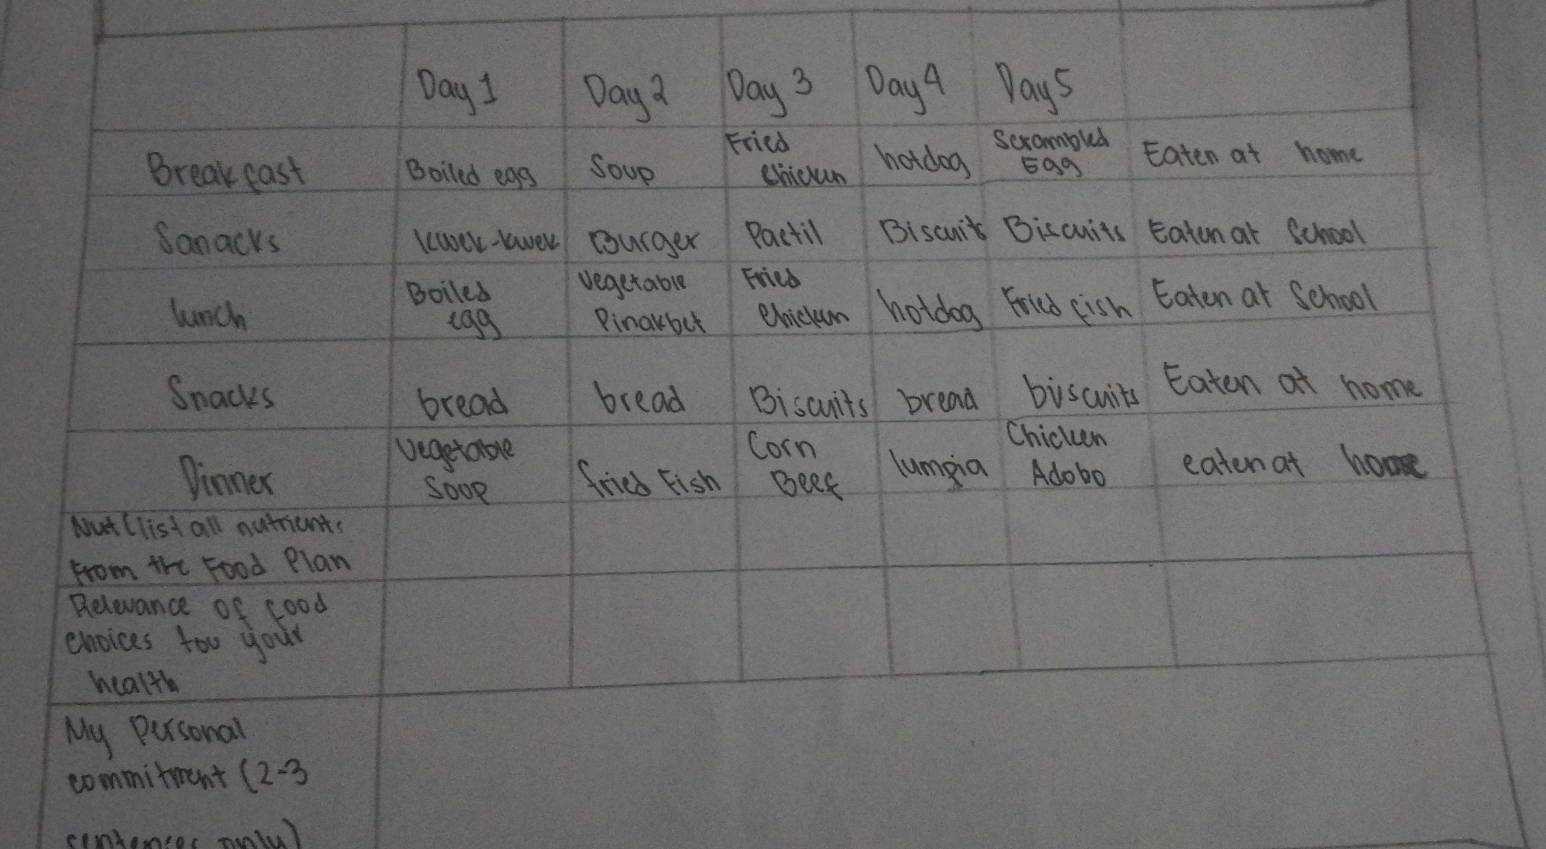 Day 1 Day 2 Day 3 Day 4 Day 5
Breakfast Boiled egg Soup Fried Chicken hotdog Scrambled Egg Eaten at home
Sanacks kwek-kwek Burger Pactil Biscuits Biscuits Eaten at School
lunch Boiled egg Vegetable Pinakbet Fried Chicken hotdog Fried fish Eaten at School
Snacks bread bread Biscuits bread biscuits Eaten at home
Dinner Vegetable Soop fried Fish Corn Beef lumpia Chicken Adobo eaten at home
Nut (list all nutrients
From the Food Plan
Relevance of food
choices tou your
health
My Personal
commitment (2-3
sentences only)